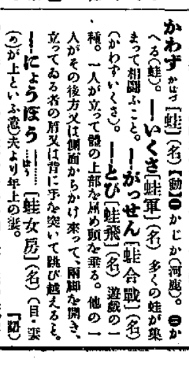 かわず かはづ [蛙] (名) 【動】㊀かじか(河鹿)。㊁か
へる(蛙)。―いくさ [蛙軍] (名) 多くの蛙が集
まって相闘ふこと。―がっせん [蛙合戰] (名)
(かわずいくさ)。―とび [蛙飛] (名) 遊戯の一
種。一人が立って體の上部を屈め頸を垂る。他の一
人がその後方又は側面からかけ來って、兩脚を開き、
立ってゐる者の肩又は背に手を突いて跳び越えるもの。
―にょうぼう [蛙女房] (名) (目・妻
(め)が上といふ意)夫より年上の妻。